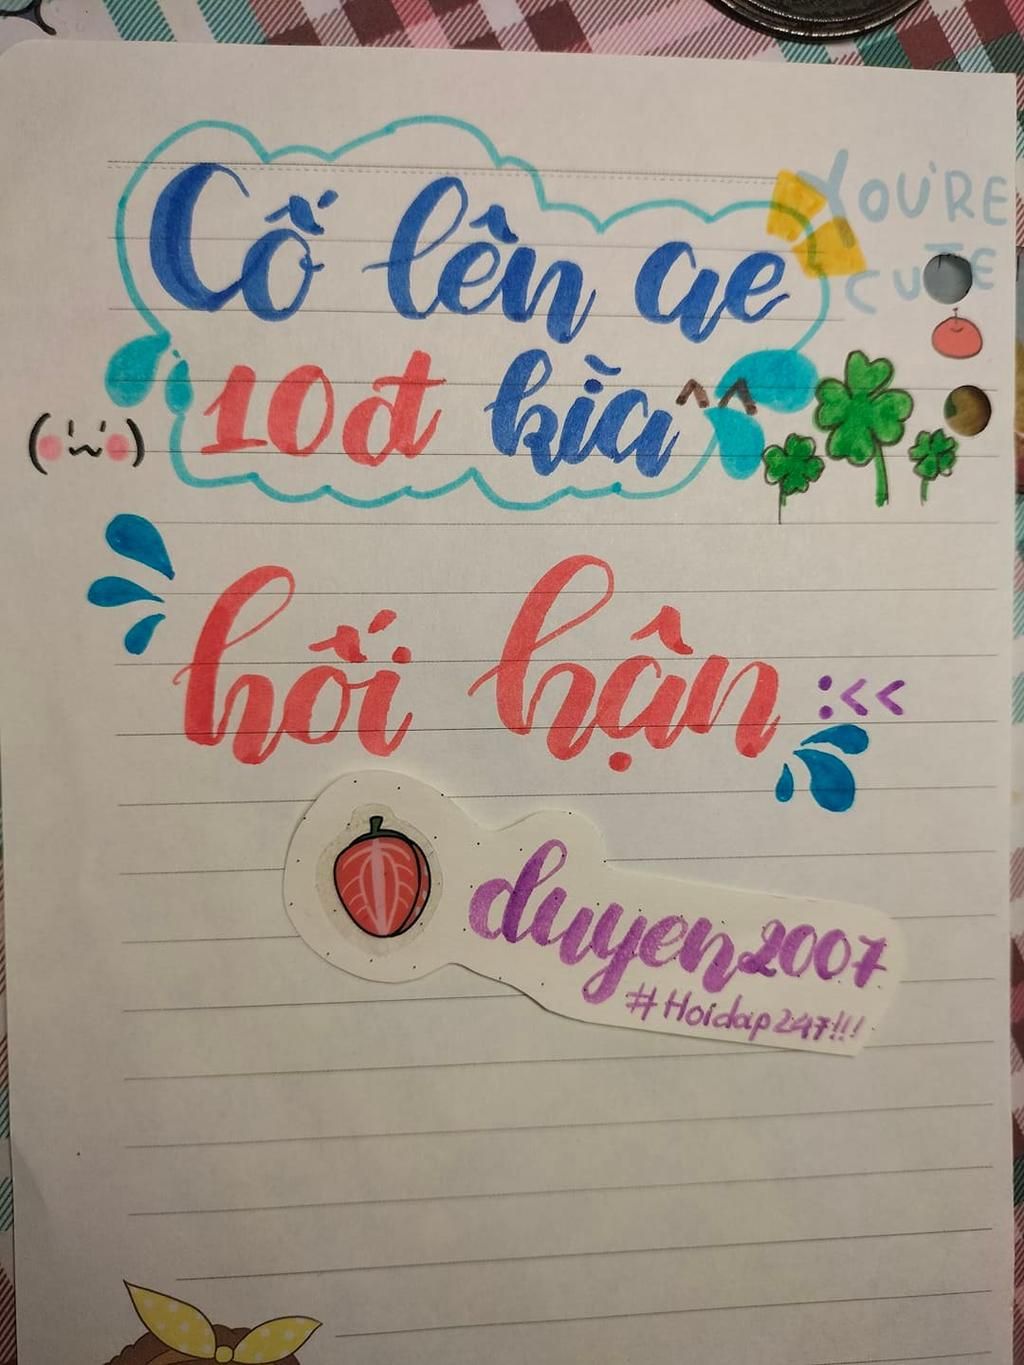 Cố lên ae
YOU'RE
CUTE
10đ kìa ^^
hối hận :<<
duyen2007
#Hoidap247!!!